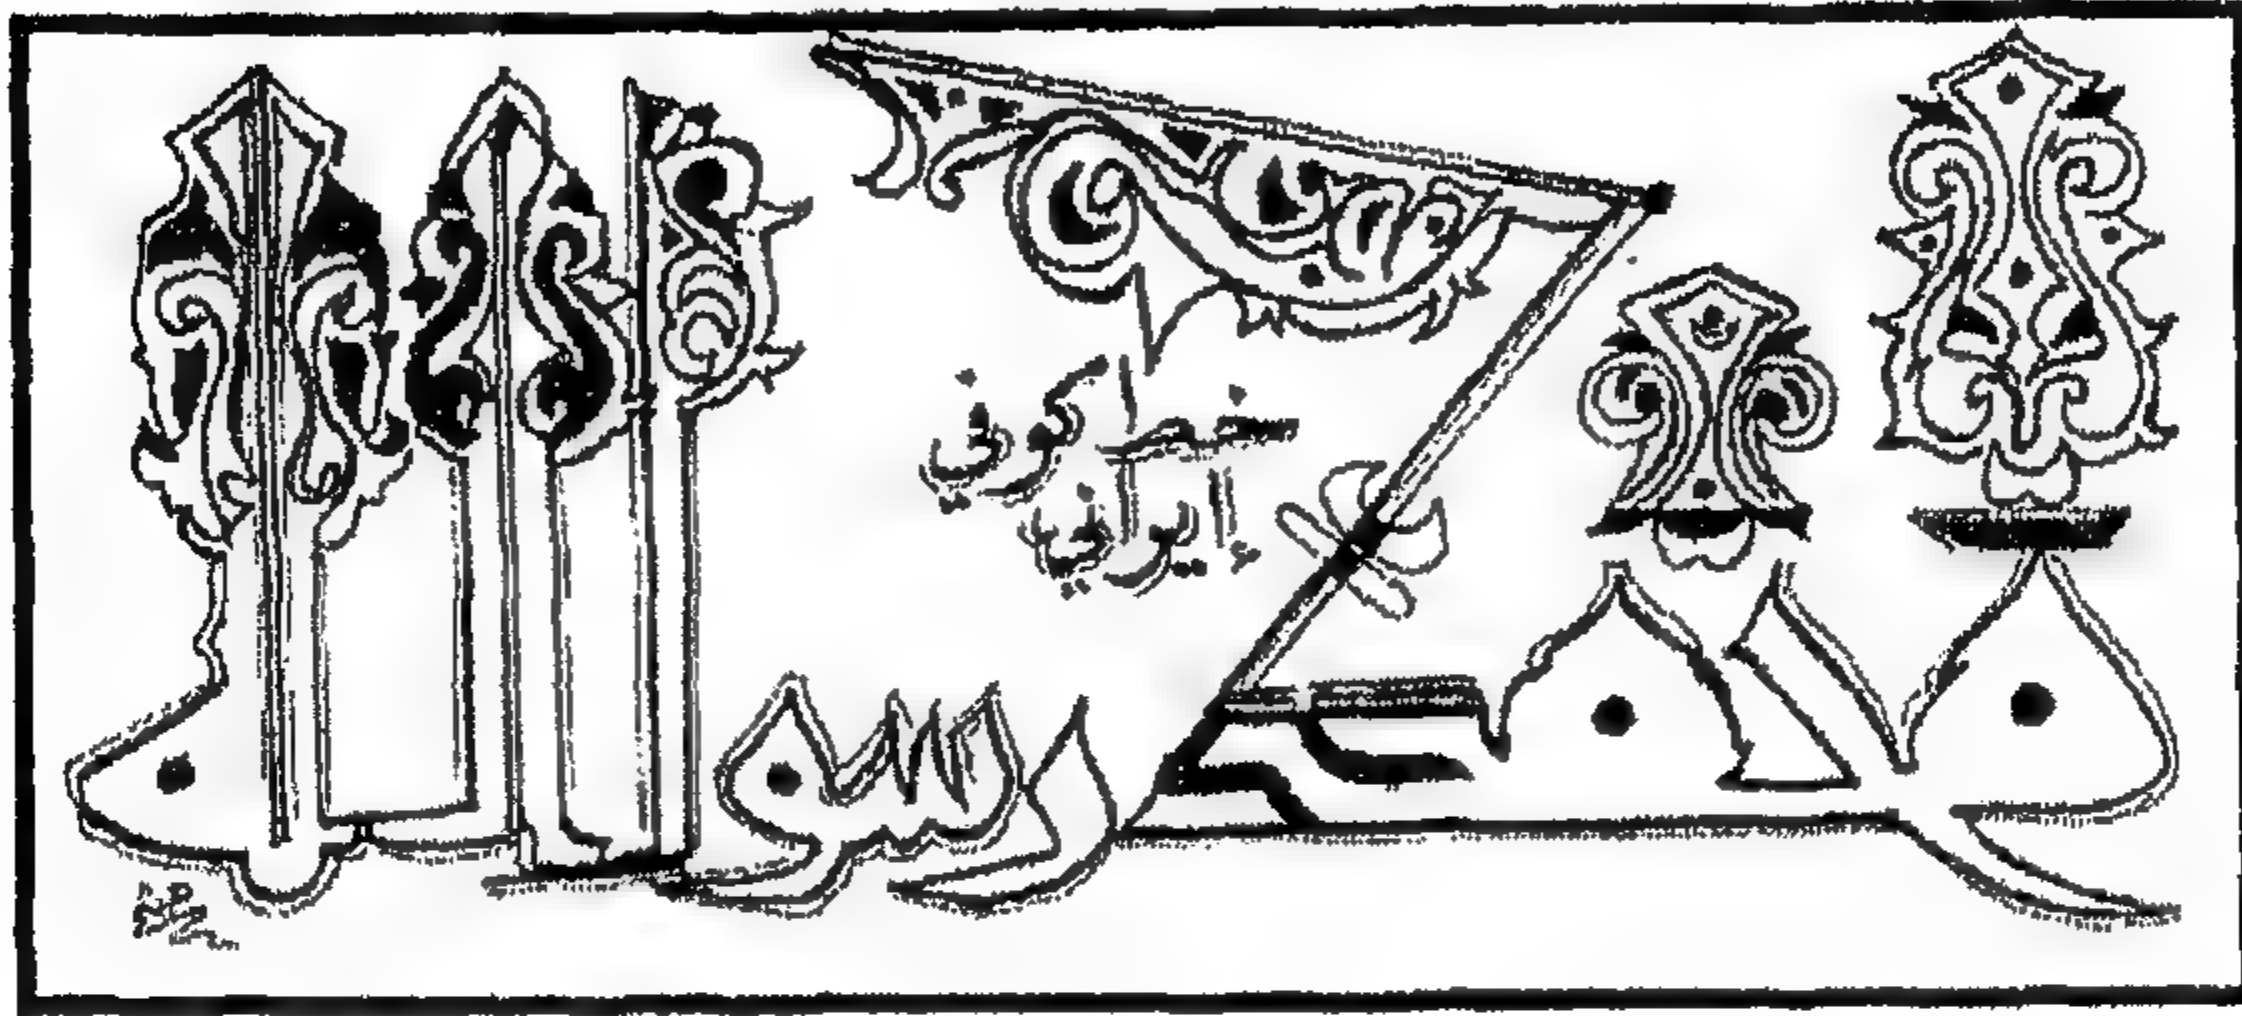 محمد رسول الله
خط كوفي
إيراني